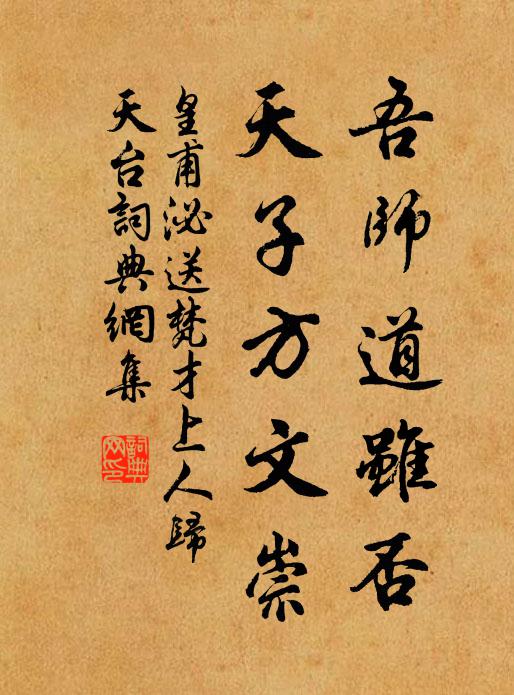 吾師道雖否
天子方文崇
皇甫泌送梵才上人歸
天台詞典網集
詞典
网印